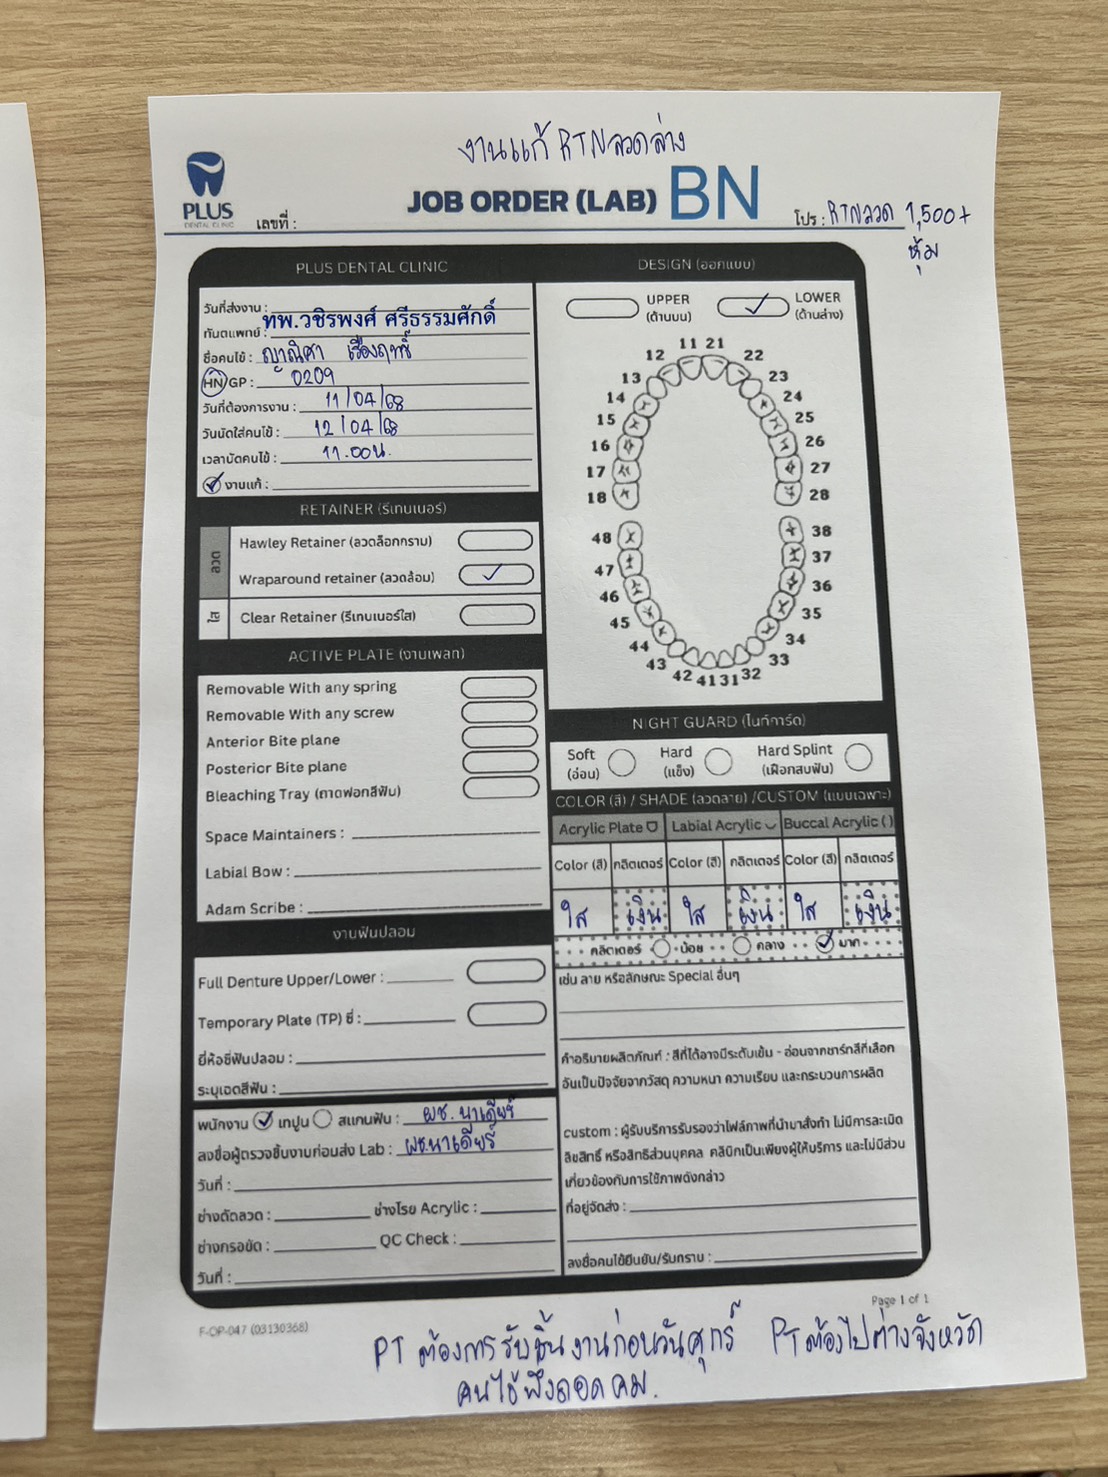 งานแก้ RTNลวดล่าง
PLUS
DENTAL CLINIC
เลขที่ :
JOB ORDER (LAB) BN
โปร : RTNลวด 1,500+
หุ้ม
PLUS DENTAL CLINIC
วันที่ส่งงาน :
ทันตแพทย์ : ทพ.วชิรพงศ์ ศรีธรรมศักดิ์
ชื่อคนไข้ : ญาณิศา เรืองฤทธิ์
HN/GP : 0209
วันที่ต้องการงาน : 11/04/68
วันนัดใส่คนไข้ : 12/04/68
เวลานัดคนไข้ : 11.00น.
งานแก้ :
RETAINER (รีเทนเนอร์)
ลวด
Hawley Retainer (ลวดล็อกกราม)
Wraparound retainer (ลวดล้อม)
ใส
Clear Retainer (รีเทนเนอร์ใส)
ACTIVE PLATE (งานเพลท)
Removable With any spring
Removable With any screw
Anterior Bite plane
Posterior Bite plane
Bleaching Tray (ถาดฟอกสีฟัน)
Space Maintainers :
Labial Bow :
Adam Scribe :
งานฟันปลอม
Full Denture Upper/Lower :
Temporary Plate (TP) ซี่ :
ยี่ห้อซี่ฟันปลอม :
ระบุเฉดสีฟัน :
พนักงาน เทปูน สแกนฟัน : ผช.นาเดียร์
ลงชื่อผู้ตรวจชิ้นงานก่อนส่ง Lab : ผช.นาเดียร์
วันที่ :
ช่างดัดลวด : ช่างโรย Acrylic :
ช่างกรอขัด : QC Check :
วันที่ :
F-OP-047 (03130368)
DESIGN (ออกแบบ)
UPPER
(ด้านบน)
LOWER
(ด้านล่าง)
11 21
12 22
13 23
14 24
15 25
16 26
17 27
18 28
48 38
47 37
46 36
45 35
44 34
43 33
42 41 31 32
NIGHT GUARD (ไนท์การ์ด)
Soft
(อ่อน)
Hard
(แข็ง)
Hard Splint
(เฝือกสบฟัน)
COLOR (สี) / SHADE (ลวดลาย) /CUSTOM (แบบเฉพาะ)
Acrylic Plate Labial Acrylic Buccal Acrylic ( )
Color (สี) กลิตเตอร์ Color (สี) กลิตเตอร์ Color (สี) กลิตเตอร์
ใส เงิน ใส เงิน ใส เงิน
กลิตเตอร์ น้อย กลาง มาก
เช่น ลาย หรือลักษณะ Special อื่นๆ
คำอธิบายผลิตภัณฑ์ : สีที่ได้อาจมีระดับเข้ม - อ่อนจากชาร์ทสีที่เลือก
อันเป็นปัจจัยจากวัสดุ ความหนา ความเรียบ และกระบวนการผลิต
custom : ผู้รับบริการรับรองว่าไฟล์ภาพที่นำมาสั่งทำ ไม่มีการละเมิด
ลิขสิทธิ์ หรือสิทธิส่วนบุคคล คลินิกเป็นเพียงผู้ให้บริการ และไม่มีส่วน
เกี่ยวข้องกับการใช้ภาพดังกล่าว
ที่อยู่จัดส่ง :
ลงชื่อคนไข้ยืนยัน/รับทราบ :
Page 1 of 1
PT ต้องการรับชิ้นงานก่อนวันศุกร์ PT ต้องไปต่างจังหวัด
คนไข้พึ่งถอดคม.